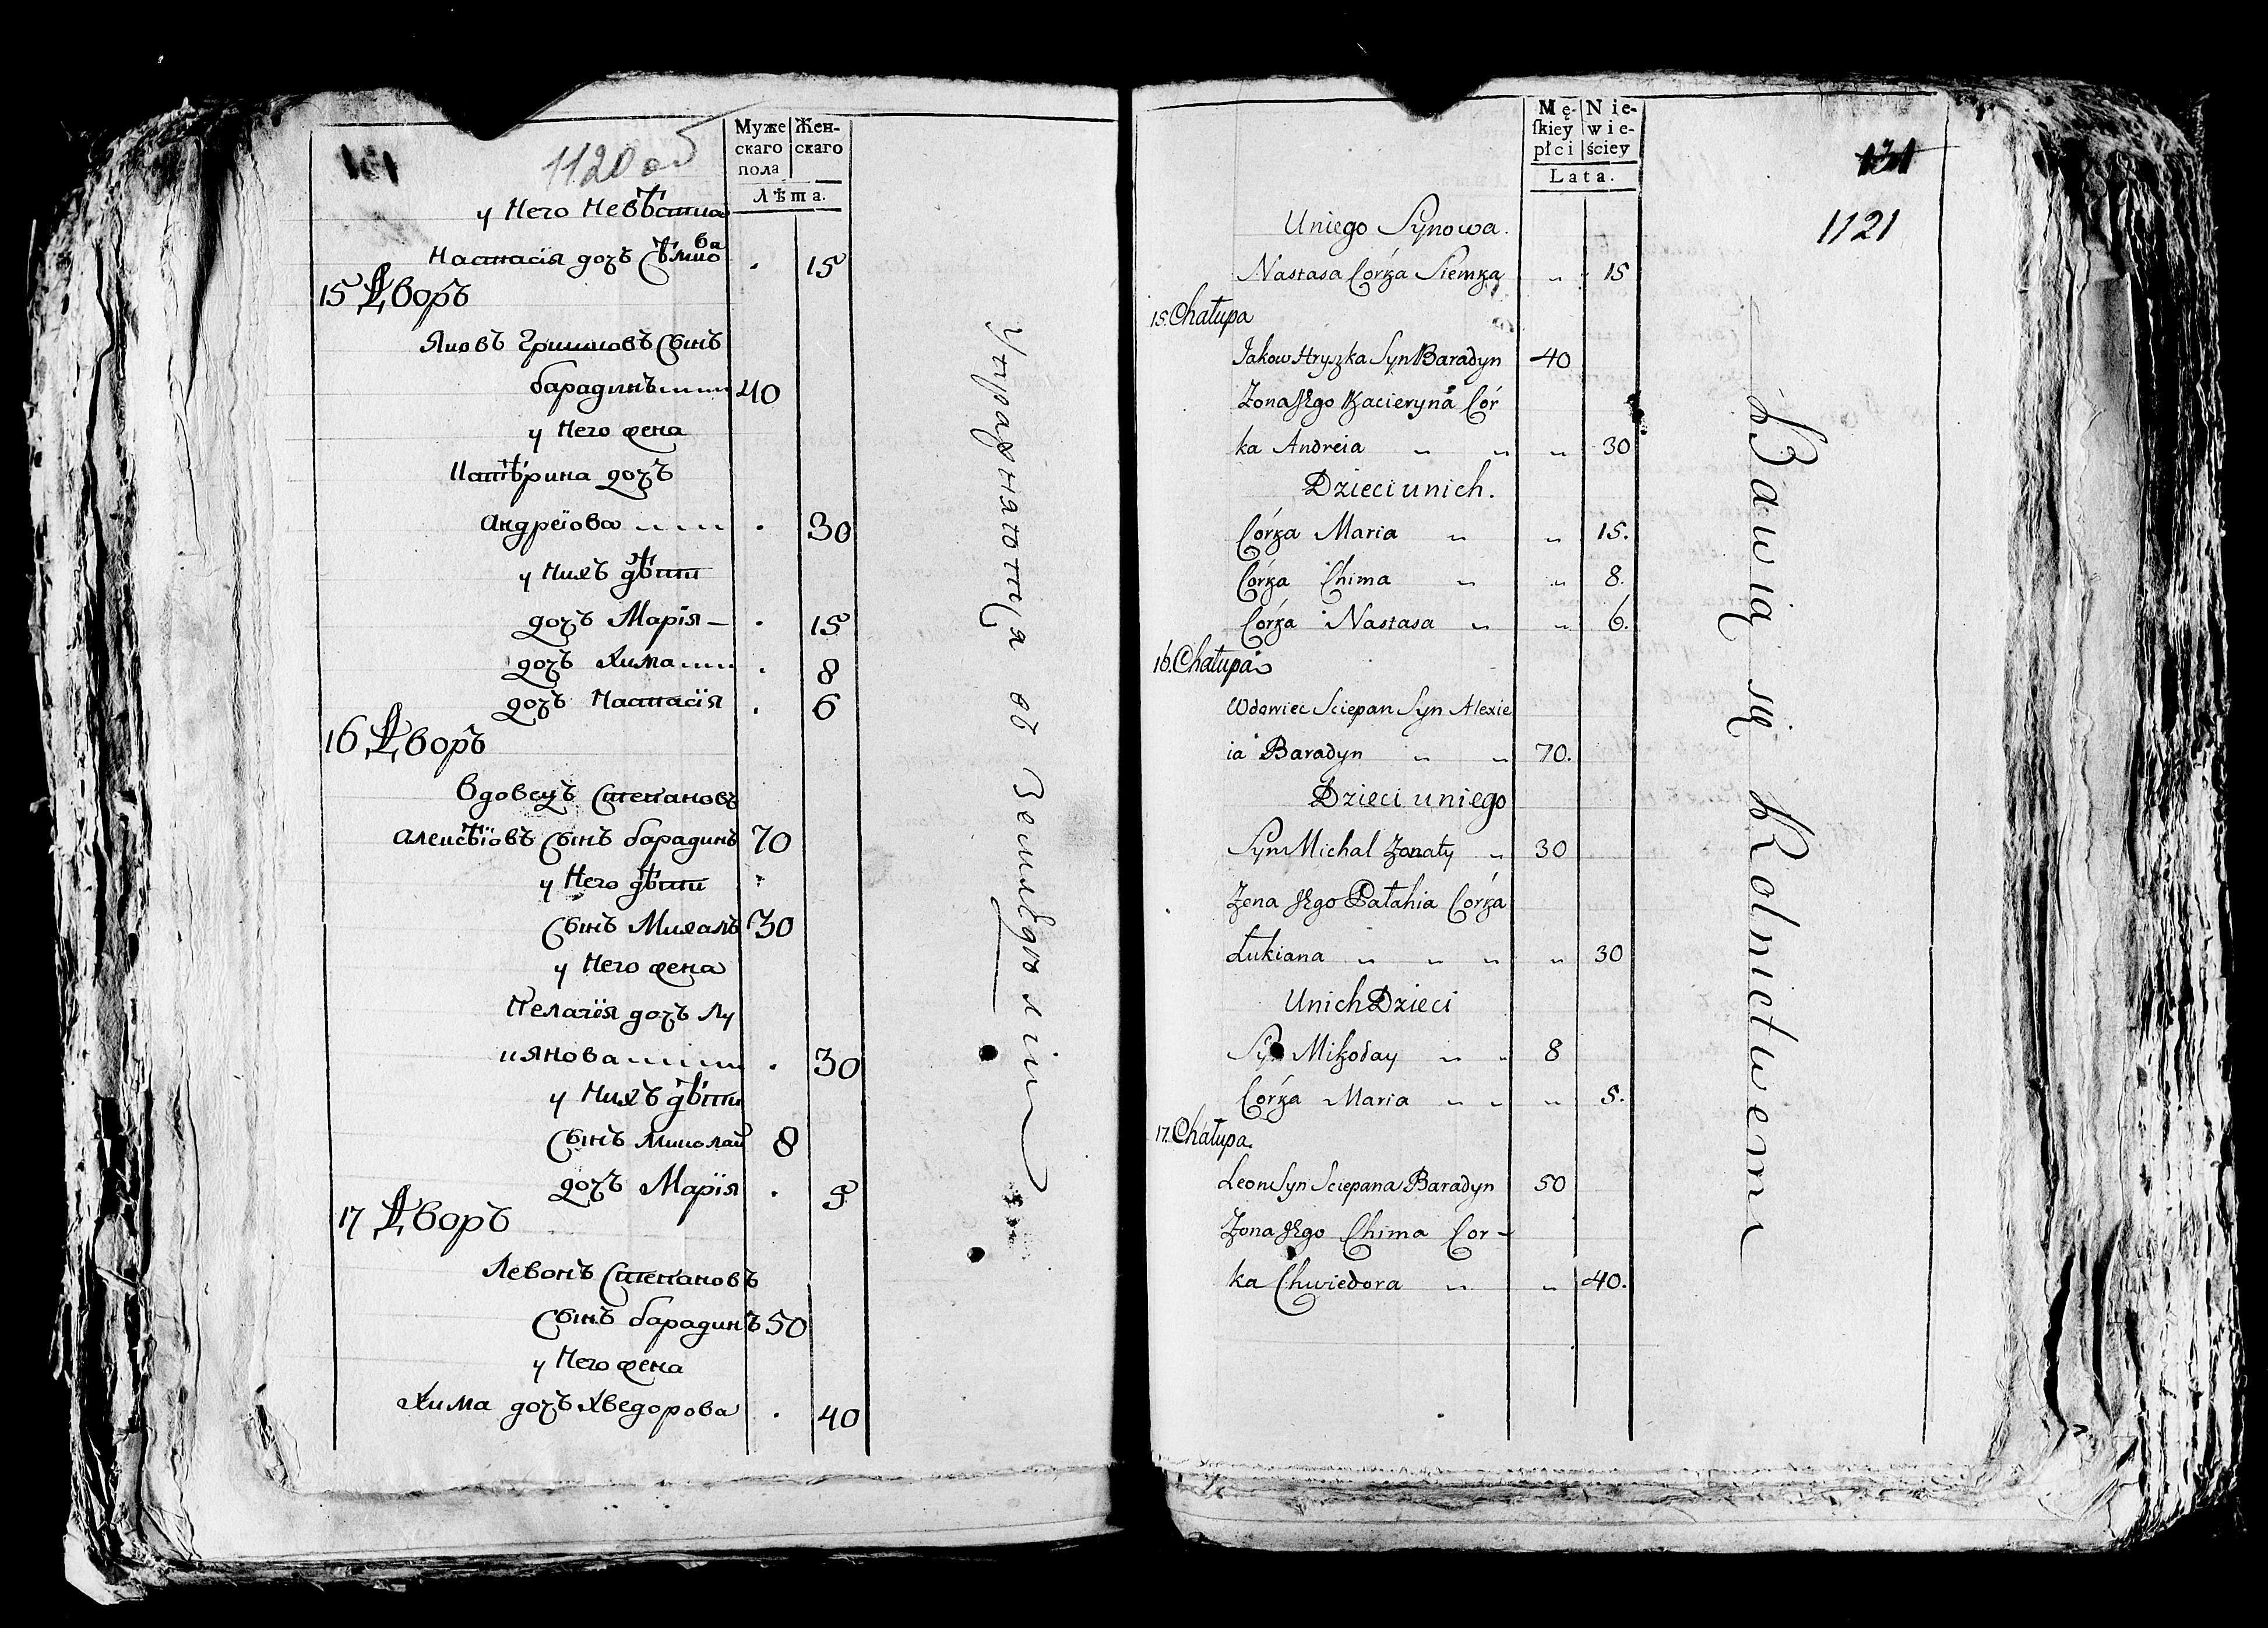 131
1120 об
Муже
скаго
пола
Жен-
скаго
Лѣта.
у Него Невѣстка
Настасїя дочь Сѣмко
ва
. 15
15 Дворъ
Яковъ Гришковъ Сынъ
барадинъ 40
у Него жена
Катѣрина дочъ
Андрѐїова . 30
у Нихъ дѣти
дочъ Марїя . 15
дочъ Хима . 8
дочъ Настасїя . 6
16 Дворъ
Вдовецъ Степановъ
Алексѣїовъ Сынъ барадинъ 70
у Него дѣти
Сынъ Михалъ 30
у Него жена
Пелагїя дочъ Лу
кянова . 30
у Нихъ дѣти
Сынъ Миколай 8
дочъ Марїя . 5
17 Дворъ
Левонъ Степановъ
Сынъ барадинъ 50
у Него жена
Хима дочъ Хведорова . 40
Упражняютца въ Земледѣлїи
Mę-
ſkiey
płci
Nie-
wie-
ściey
Lata.
131
1121
Uniego Synowa.
Nastasa Córka Siemka „ 15
15. Chałupa
Jakow Hryszka Syn Baradyn 40
Zona Jego Kacieryna Cór
ka Andreia „ „ „ 30
Dzieci unich.
Córka Maria „ „ 15.
Córka Chima „ „ 8.
Córka Nastasa „ „ 6.
16. Chałupa
Wdowiec Sciepan Syn Alexie
ia Baradyn „ „ 70.
Dzieci uniego
Syn Michal Zonaty „ 30
Zena Jego Pałahia Córka
Łukiana „ „ „ „ 30
Unich Dzieci
Syn Mikoday „ „ 8
Córka Maria „ „ „ 5.
17. Chałupa.
Leon Syn Sciepana Baradyn 50
Zona Jego Chima Cor-
ka Chwiedora „ „ 40.
Bawią się Rolnictwem